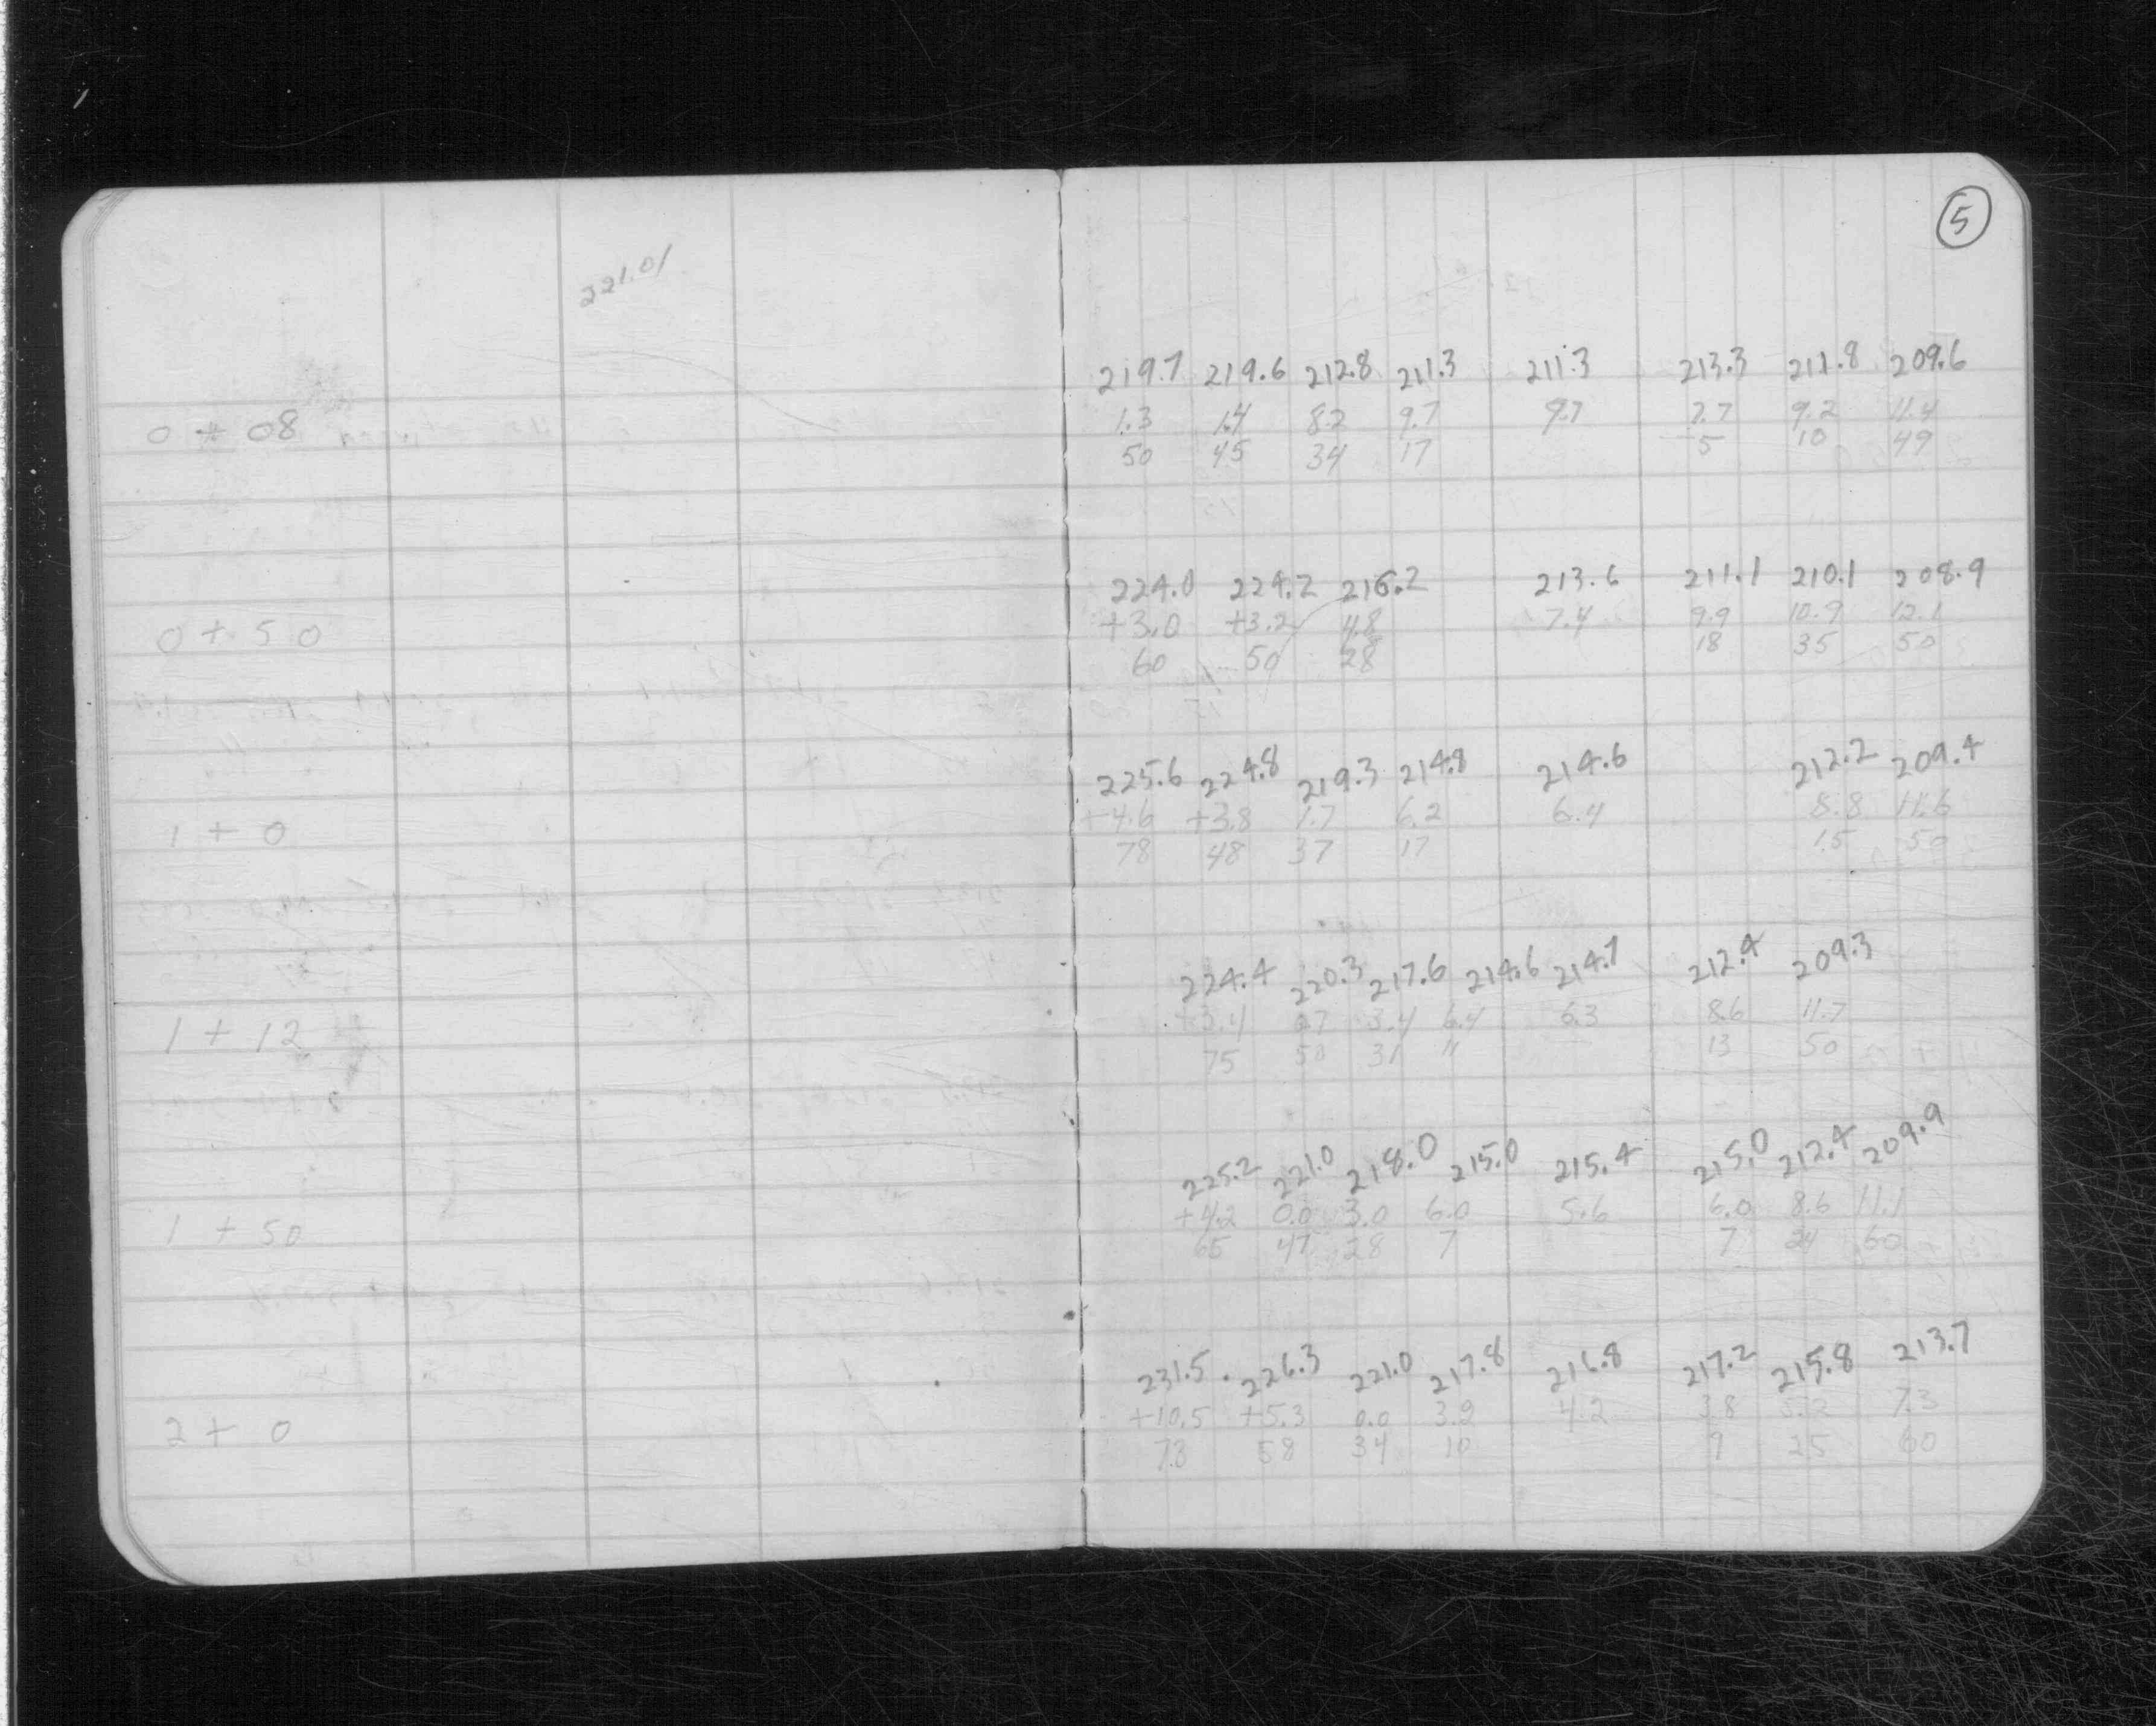 5
221.01
219.7 219.6 212.8 211.3 211.3 213.3 211.8 209.6
0 + 08 1.3 1.4 8.2 9.7 9.7 7.7 9.2 11.4
50 45 34 17 5 10 49
224.0 224.2 216.2 213.6 211.1 210.1 208.9
0 + 50 +3.0 +3.2 4.8 7.4 9.9 10.9 12.1
60 50 28 18 35 50
225.6 224.8 219.3 214.8 214.6 212.2 209.4
1 + 0 +4.6 +3.8 1.7 6.2 6.4 8.8 11.6
78 48 37 17 15 50
224.4 220.3 217.6 214.6 214.7 212.4 209.3
1 + 12 +3.4 0.7 3.4 6.4 6.3 8.6 11.7
75 50 31 11 13 50
225.2 221.0 218.0 215.0 215.4 215.0 212.4 209.9
1 + 50 +4.2 0.0 3.0 6.0 5.6 6.0 8.6 11.1
65 47 28 7 7 24 60
231.5 226.3 221.0 217.8 216.8 217.2 215.8 213.7
2 + 0 +10.5 +5.3 0.0 3.2 4.2 3.8 5.2 7.3
73 58 34 10 9 25 60